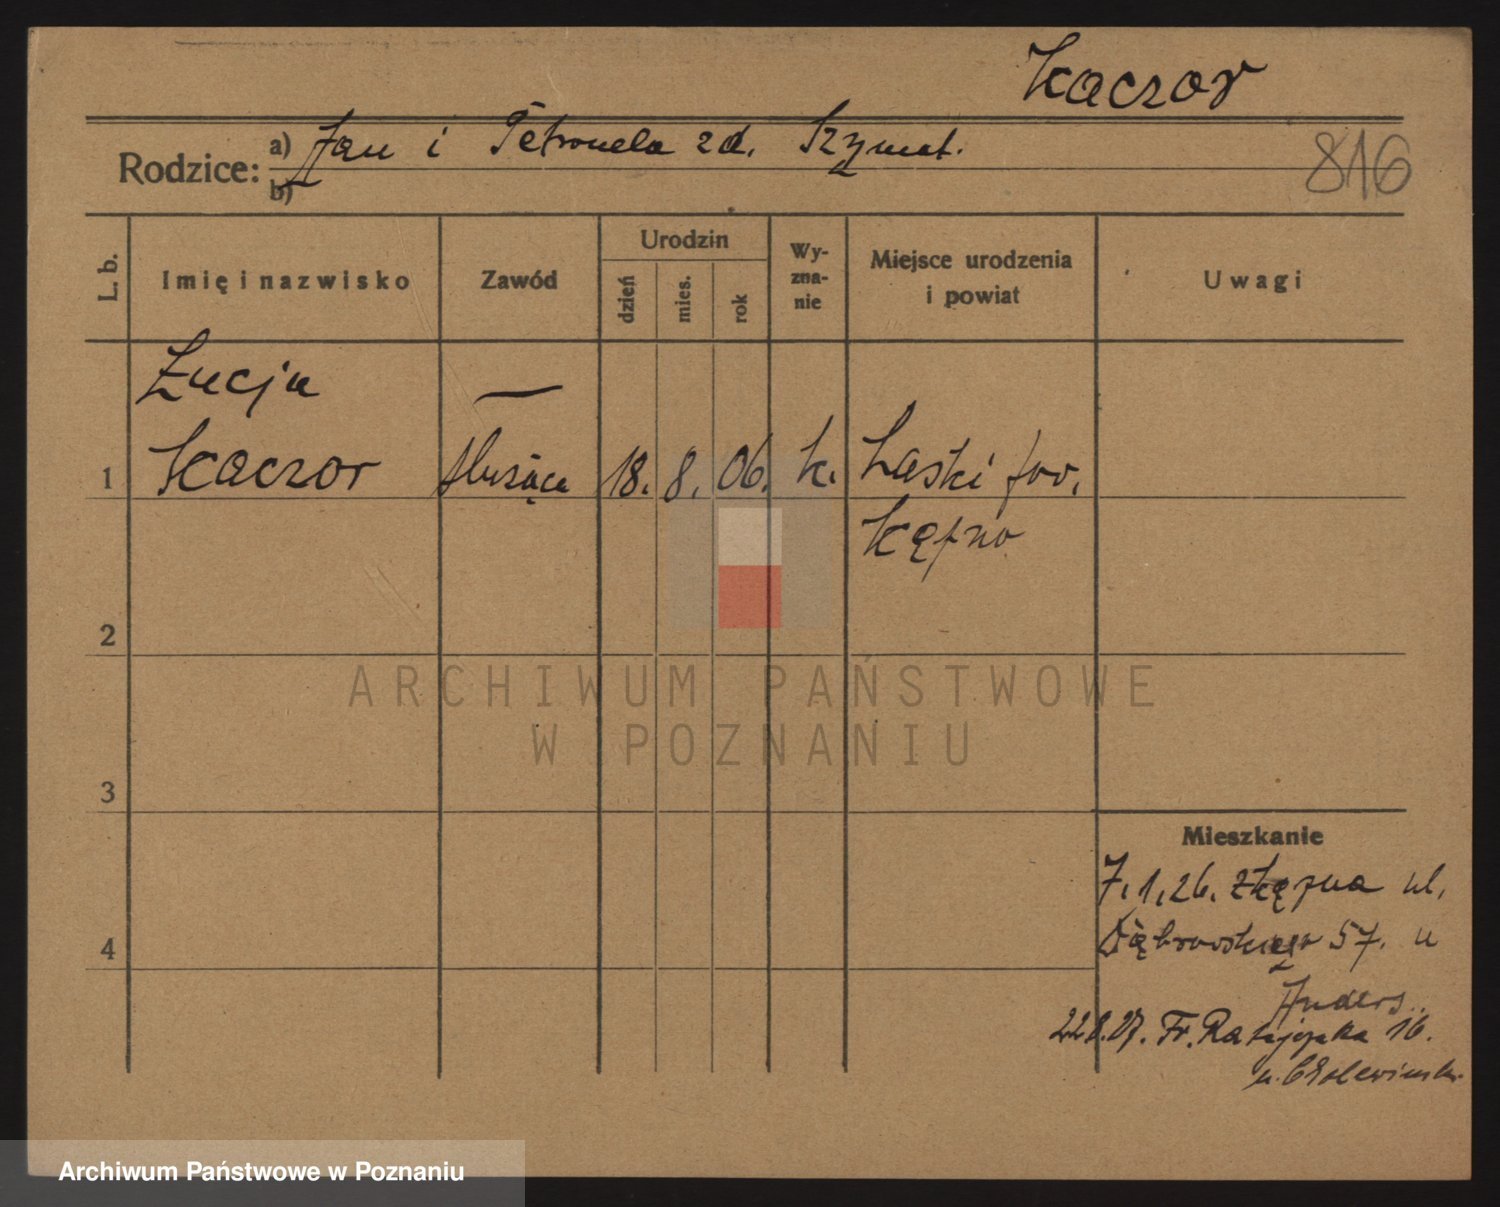 Kaczor
Rodzice: a) Jan i Petronela zd. Szymat.
b)
816
L. b.
Imię i nazwisko
Zawód
Urodzin
dzień
mies.
rok
Wy-
zna-
nie
Miejsce urodzenia
i powiat
Uwagi
Łucja
—
1 Kaczor służąca 18. 8. 06. k. Laski pow.
Kępno
2
3
4
Mieszkanie
7.1.26. z Kępna ul.
Dąbrowskiego 57. u
Anders.
22.8.27. Fr. Ratajczaka 16.
u.
ARCHIWUM PAŃSTWOWE
W POZNANIU
Archiwum Państwowe w Poznaniu